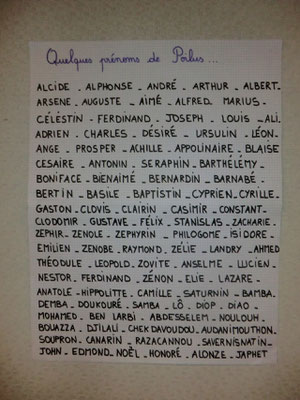 Quelques prénoms de Poilus...
ALCIDE - ALPHONSE - ANDRÉ - ARTHUR - ALBERT -
ARSENE - AUGUSTE - AIMÉ - ALFRED - MARIUS -
CÉLÉSTIN - FERDINAND - JOSEPH - LOUIS - ALI -
ADRIEN - CHARLES - DÉSIRÉ - URSULIN - LÉON -
ANGE - PROSPER - ACHILLE - APPOLINAIRE - BLAISE
CESAIRE - ANTONIN - SERAPHIN - BARTHÉLÉMY -
BONIFACE - BIENAIMÉ - BERNARDIN - BARNABÉ -
BERTIN - BASILE - BAPTISTIN - CYPRIEN - CYRILLE -
GASTON - CLOVIS - CLAIRIN - CASIMIR - CONSTANT -
CLODOMIR - GUSTAVE - FÉLIX - STANISLAS - ZACHARIE -
ZEPHIR - ZENOLE - ZEPHYRIN - PHILOGOME - ISIDORE -
EMILIEN - ZENOBE - RAYMOND - ZÉLIE - LANDRY - AHMED
THÉODULE - LEOPOLD - ZOVITE - ANSELME - LUCIEN -
NESTOR - FERDINAND - ZÉNON - ELIE - LAZARE -
ANATOLE - HIPPOLITTE - CAMILLE - SATURNIN - BAMBA -
DEMBA - DOUKOURÉ - SAMBA - LÔ - DIOP - DIAO -
MOHAMED - BEN LARBI - ABDESSELEM - NOULOUH -
BOUAZZA - DJILALI - CHEK DAVOUDOU - AUDANIMOUTHON -
SOUPRON - CANARIN - RAZACANNOU - SAVERNISNATIN -
JOHN - EDMOND - NOËL - HONORÉ - ALONZE - JAPHET